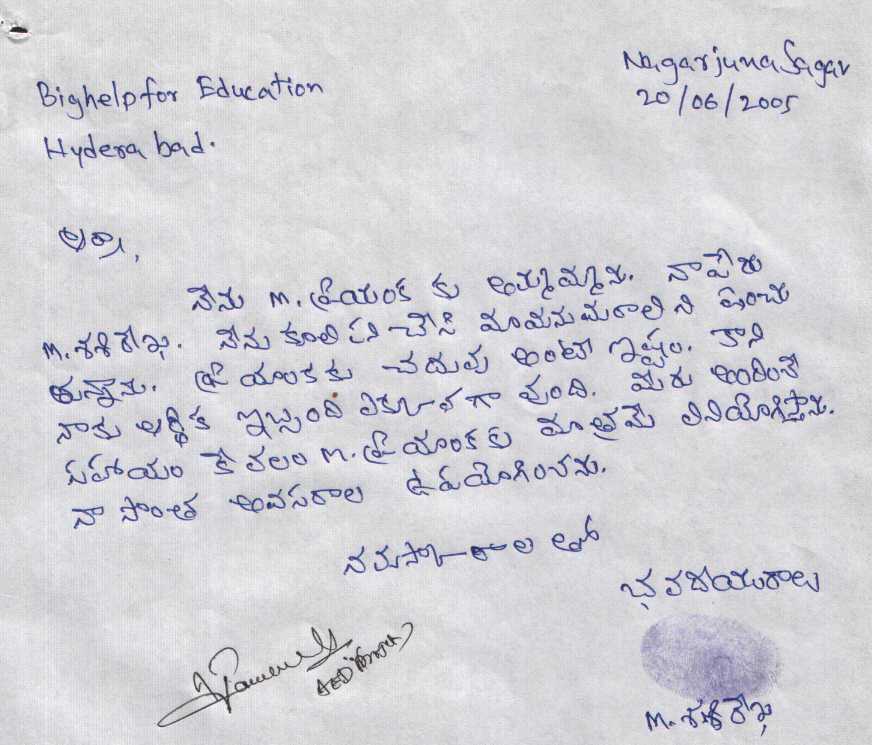 Nagarjuna Sagar
20/06/2005
Bighelp for Education
Hyderabad.
ఆర్యా,
నేను M. ప్రియంక కు అమ్మమ్మాను. నా పేరు
M. శశిరేఖ. నేను కూలి పని చేసి మా మనుమరాలి ని పెంచు
తున్నాను. ప్రియాంకకు చదువు అంటే ఇష్టం. కాని
నాకు ఆర్థిక ఇబ్బంది ఎక్కువగా వుంది. మీరు అందించే
సహాయం కేవలం M. ప్రియాంకకు మాత్రమే వినియోగిస్తాను.
నా సొంత అవసరాల ఉపయోగించను.
నమస్కారాల తో
భవదీయురాలు
M. శశిరేఖ